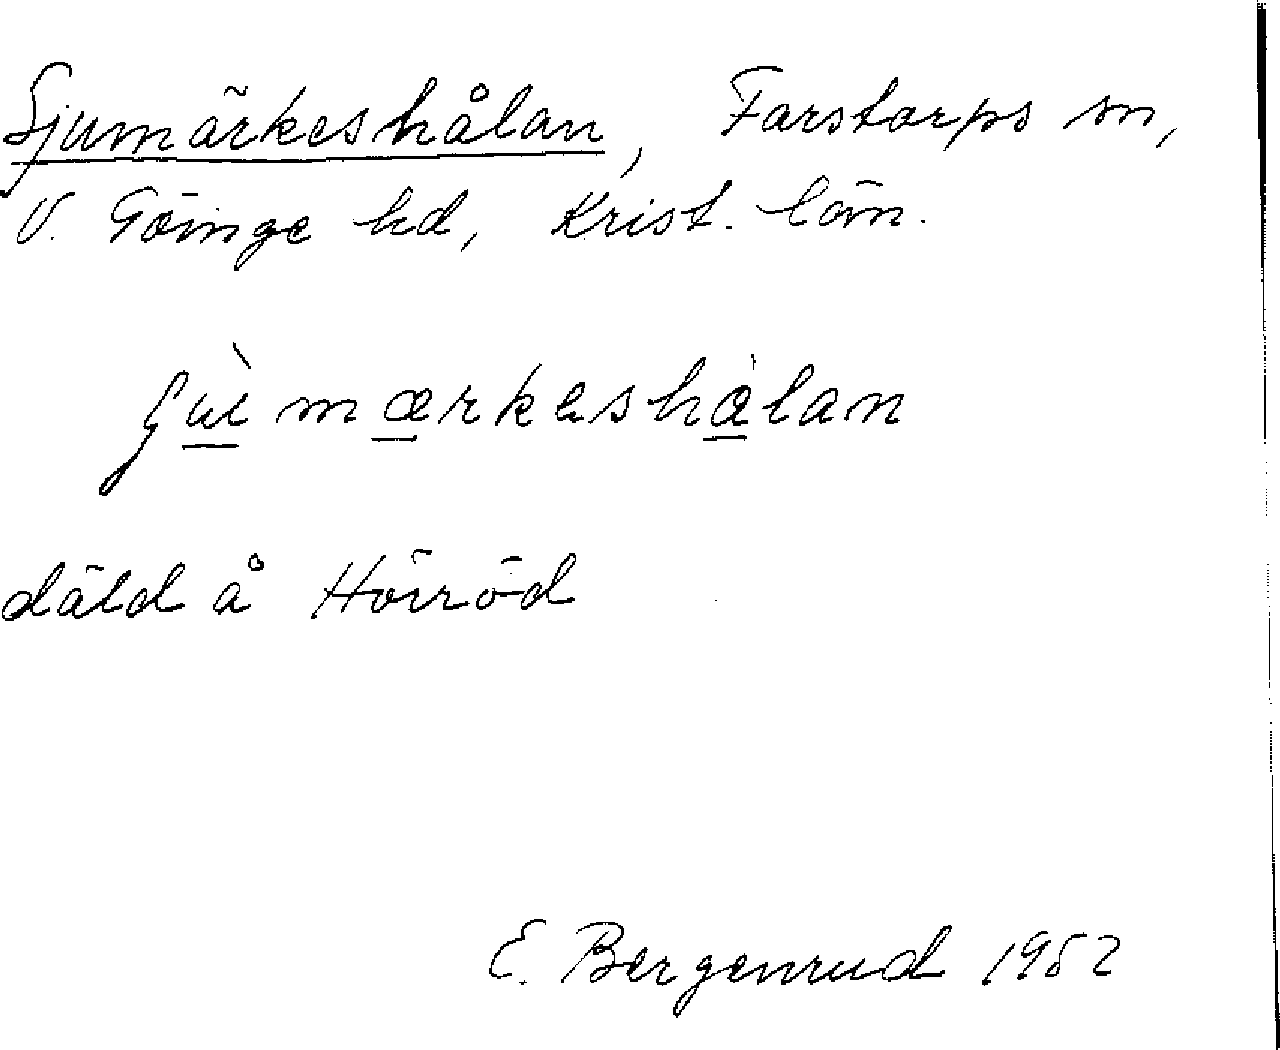 Sjumärkeshålan, Farstorps sn,
V. Göinge hd, Krist. län.
mærkeshålan
däld å Hörröd
E. Bergenrud 1952